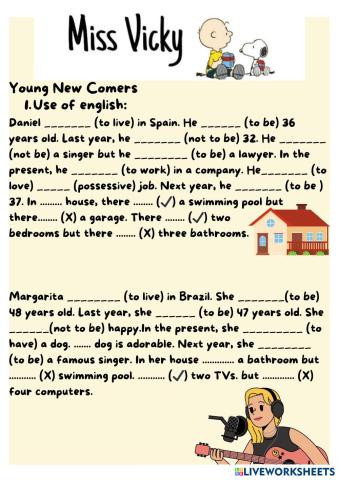 Miss Vicky
Young New Comers
1.Use of english:
Daniel _______ (to live) in Spain. He ______ (to be) 36
years old. Last year, he _______ (not to be) 32. He _______
(not be) a singer but he ________ (to be) a lawyer. In the
present, he _______ (to work) in a company. He_______ (to
love) _____ (possessive) job. Next year, he _______ (to be )
37. In ......... house, there ........ (✓) a swimming pool but
there........ (X) a garage. There ........ (✓) two
bedrooms but there ........ (X) three bathrooms.
Margarita ________ (to live) in Brazil. She _______(to be)
48 years old. Last year, she ______ (to be) 47 years old. She
______(not to be) happy.In the present, she _________ (to
have) a dog. ....... dog is adorable. Next year, she ________
(to be) a famous singer. In her house ............. a bathroom but
........... (X) swimming pool. ........... (✓) two TVs. but ............. (X)
four computers.
LIVEWORKSHEETS